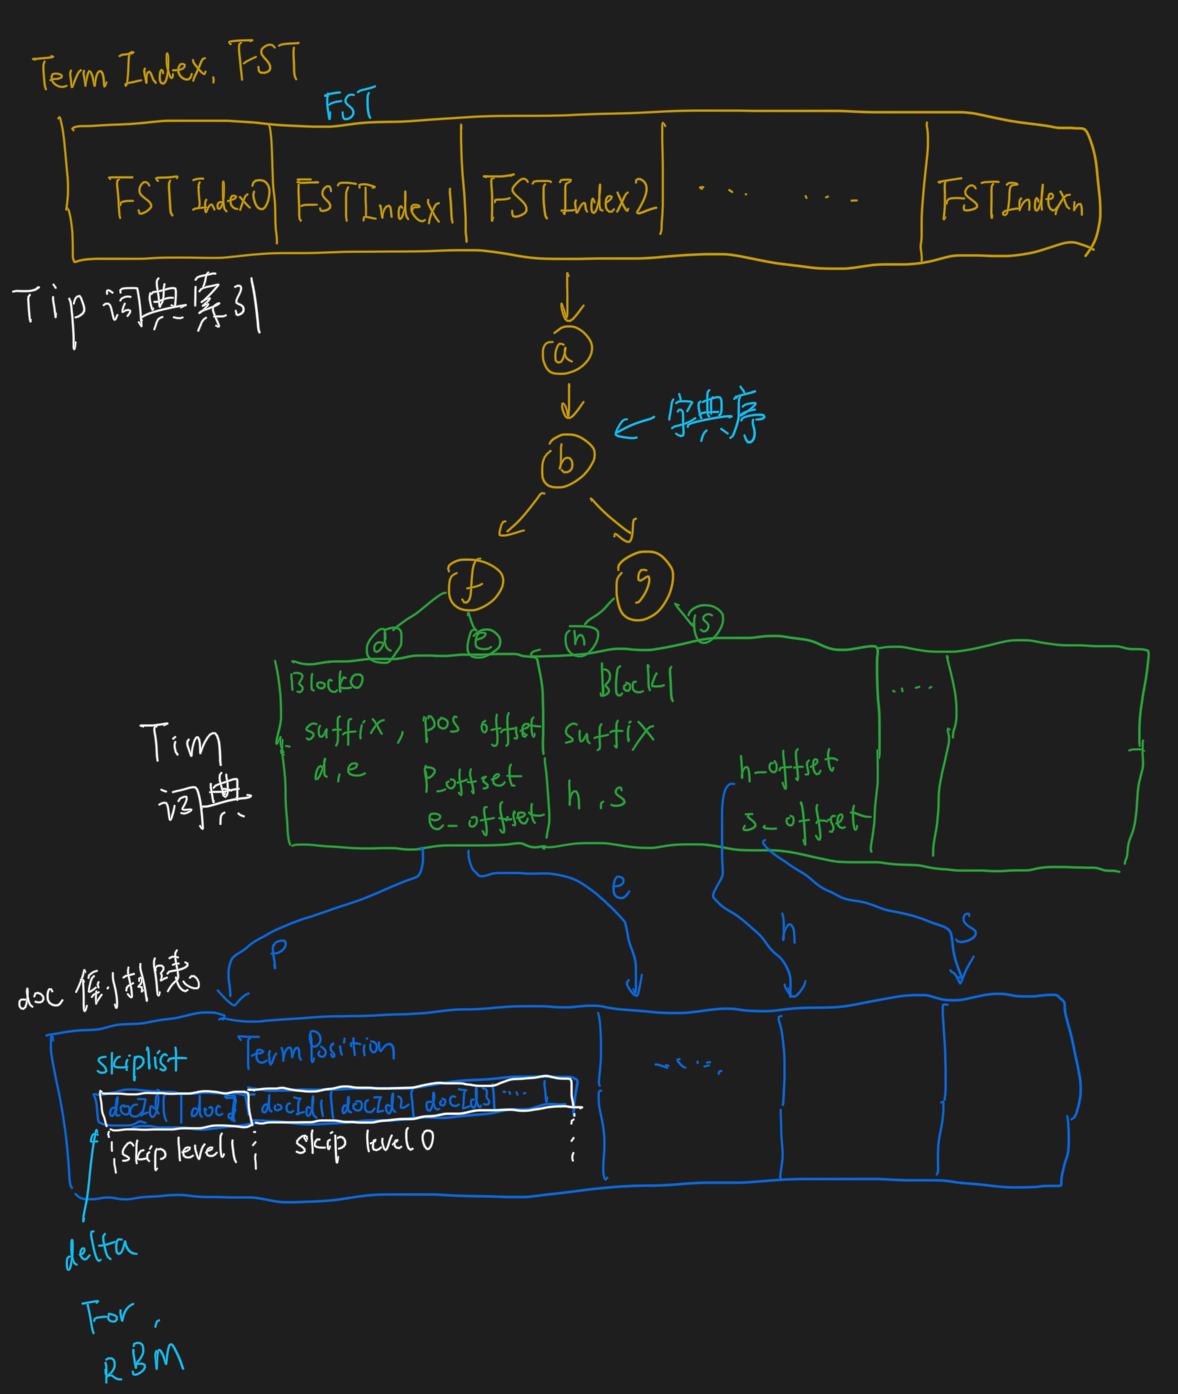 Term Index, FST
FST
FST Index0
FSTIndex1
FSTIndex2
... ...
FSTIndexn
Tip 词典索引
a
b
← 字典序
f
g
d
e
h
s
Block0
suffix, pos offset
d,e
P_offset
e_offset
Block1
suffix
h,s
h_offset
s_offset
....
Tim
词典
P
e
h
s
doc 倒排表
skiplist
TermPosition
docId1
docId1
docId2
docId3
....
skip level1
skip level0
.....
delta
For,
RBM